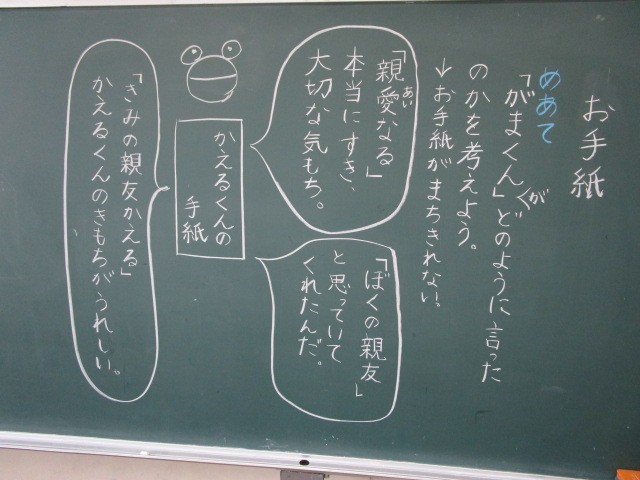 お手紙
めあて
「がまくん」がどのように言った
のかを考えよう。
↓お手紙がまちきれない。
「親愛なる」
あい
本当にすき、
大切な気もち。
「ぼくの親友」
と思っていて
くれたんだ。
かえるくんの
手紙
「きみの親友かえる」
かえるくんのきもちがうれしい。